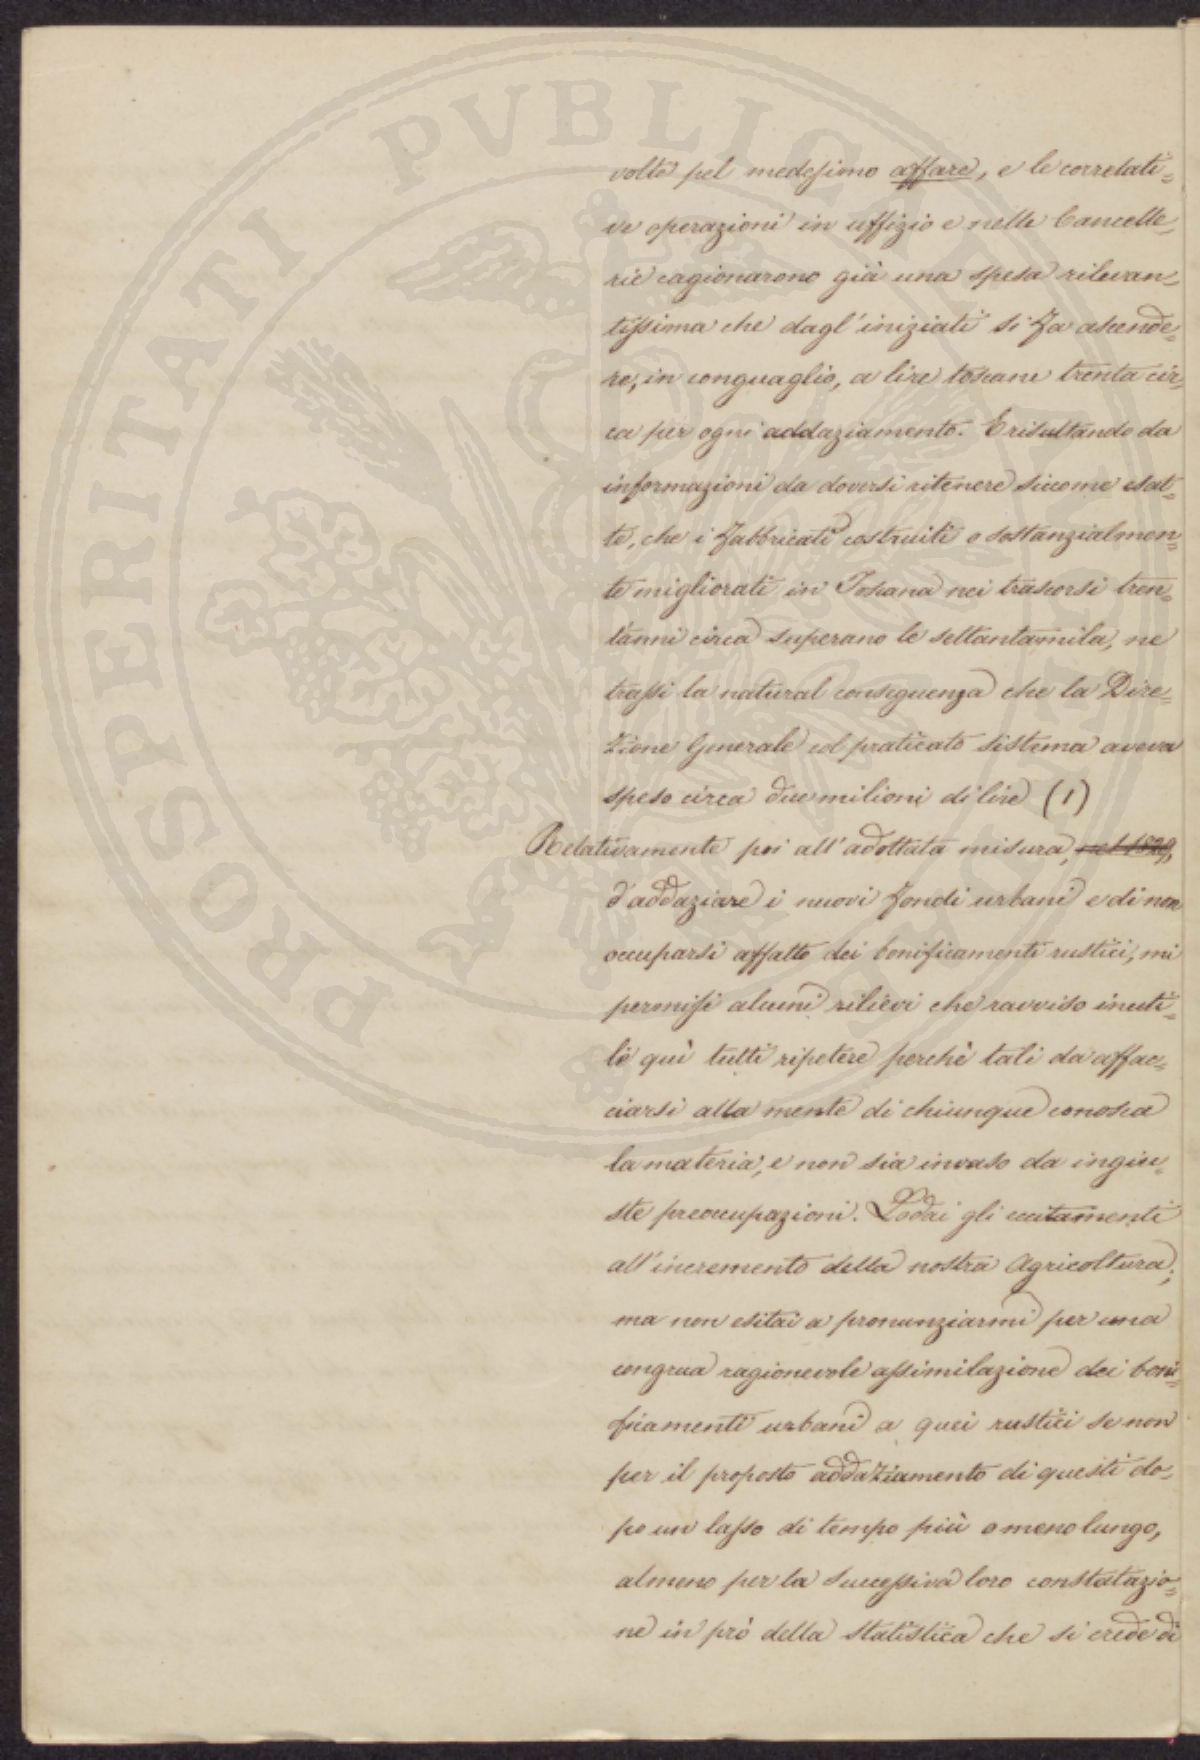 PROSPERITATI PVBLICAE
volte pel medesimo affare, e le correlati=
ve operazioni in uffizio e nelle Cancelle=
rie cagionarono già una spesa rilevan=
tissima che dagl'iniziati si fa ascende=
re, in conguaglio, a lire toscane trenta cir=
ca per ogni addaziamento. E risultando da
informazioni da doversi ritenere siccome esat=
te, che i fabbricati costruiti o sostanzialmen=
te migliorati in Toscana nei trascorsi tren=
tanni circa superano le settantamila, ne
trassi la natural conseguenza che la Dire=
zione Generale col praticato sistema aveva
speso circa due milioni di lire (1)
Relativamente poi all'adottata misura, nel 1829,
d'addaziare i nuovi fondi urbani e di non
occuparsi affatto dei bonificamenti rustici, mi
permisi alcuni rilievi che ravviso inuti=
le quì tutti ripetere perchè tali da affac=
ciarsi alla mente di chiunque conosca
la materia, e non sia invaso da ingiu=
ste preoccupazioni. Lodai gli eccitamenti
all'incremento della nostra Agricoltura;
ma non esitai a pronunziarmi per una
congrua ragionevole assimilazione dei boni=
ficamenti urbani a quei rustici se non
per il proposto addaziamento di questi do=
po un lasso di tempo più o meno lungo,
almeno per la successiva loro constatazio=
ne in prò della statistica che si crede di